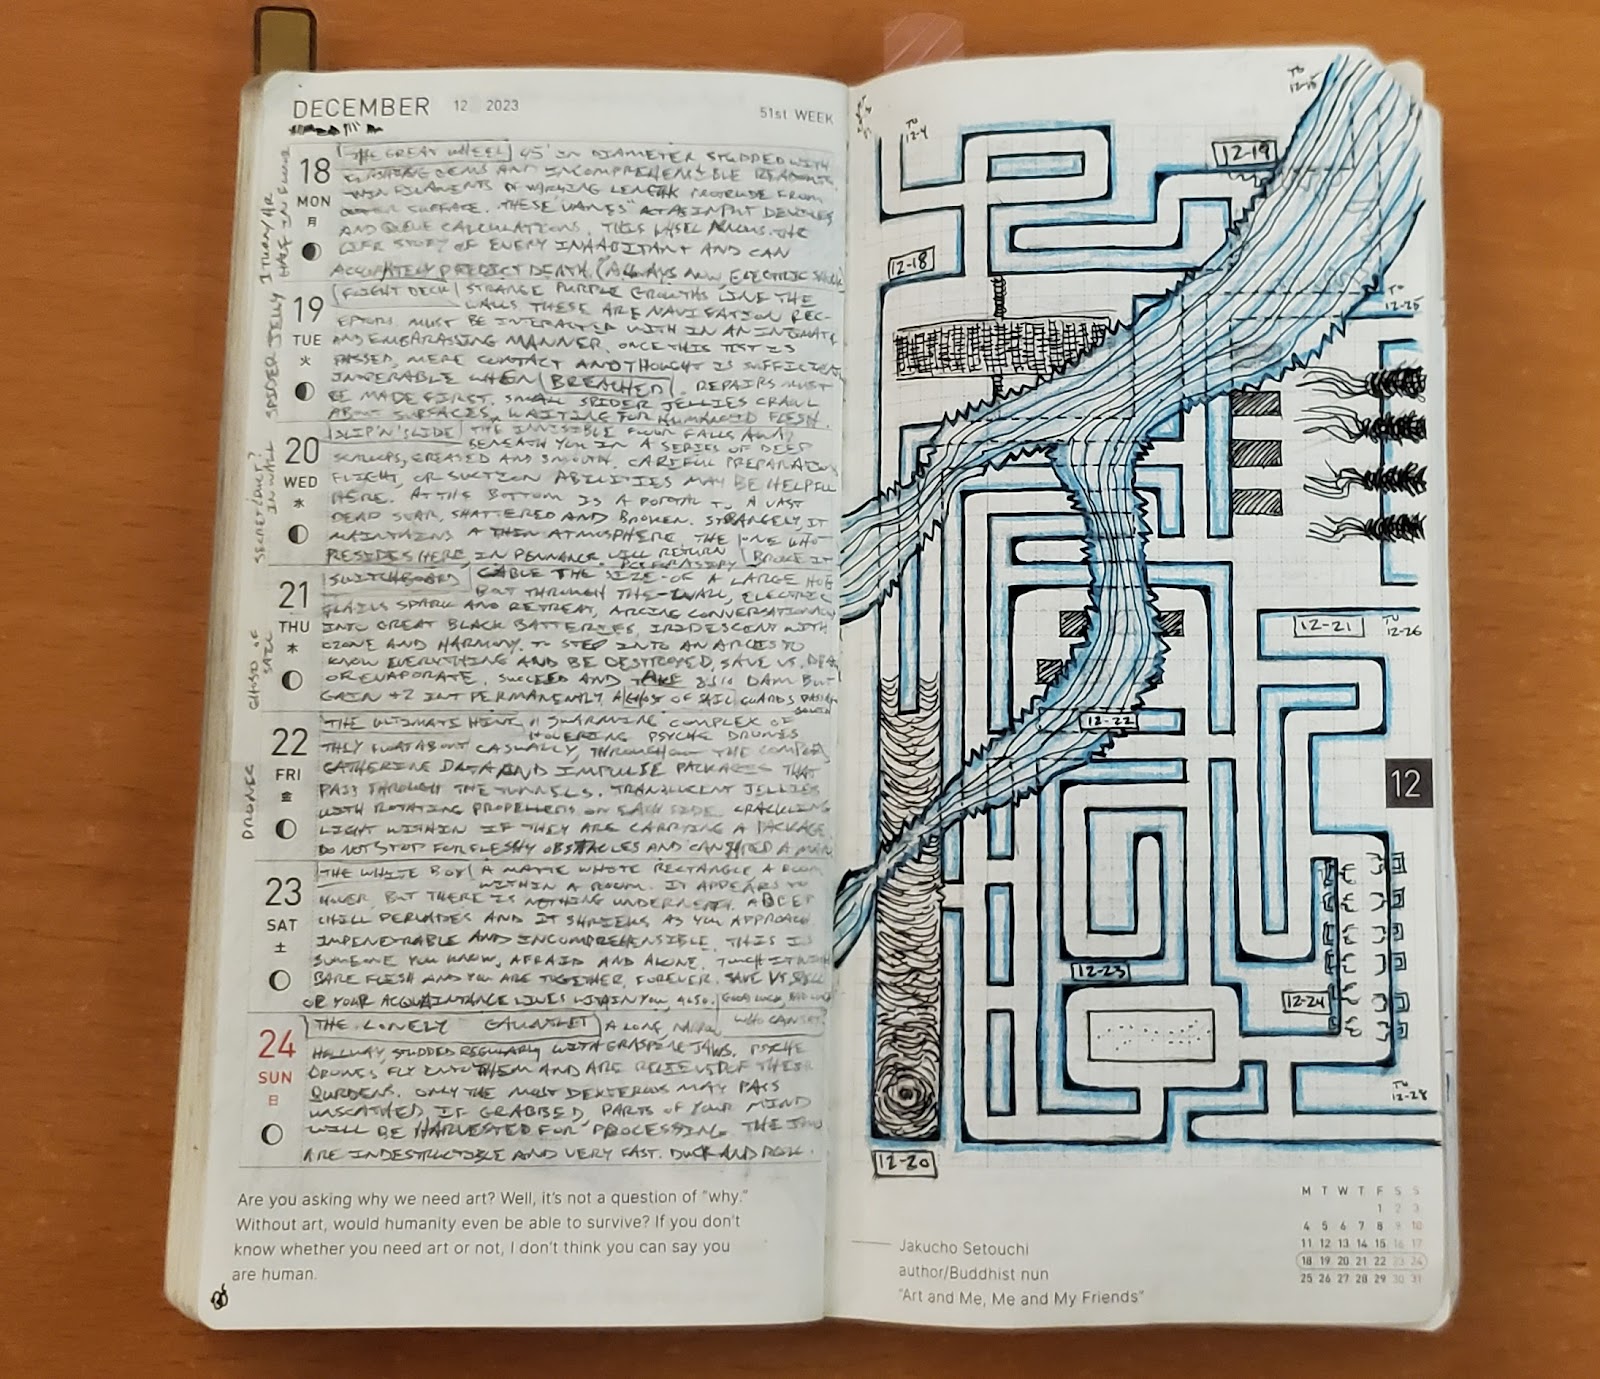 DECEMBER 12 2023
51st WEEK
18
MON
月
THE GREAT WHEEL 45' IN DIAMETER STUDDED WITH
GEMS AND INCOMPREHENSIBLE READOUTS.
THIN FILAMENTS OF VARYING LENGTH PROTRUDE FROM
OUTER SURFACE. THESE "VANES" ACT AS INPUT DEVICES
AND QUEUE CALCULATIONS. THIS KNOWS THE
LIFE STORY OF EVERY INHABITANT AND CAN
ACCURATELY PREDICT DEATH. (ALWAYS NOW, ELECTRIC
19
TUE
火
SPIDER JELLY
FLIGHT DECK STRANGE PURPLE GROWTHS LINE THE
WALLS THESE ARE NAVIGATION REC-
EPTORS. MUST BE INTERACTED WITH IN AN INTIMATE
AND EMBARASSING MANNER. ONCE THIS TEST IS
PASSED, MERE CONTACT AND THOUGHT IS SUFFICIENT.
INOPERABLE WHEN BREACHED. REPAIRS MUST
BE MADE FIRST. SMALL SPIDER JELLIES CRAWL
ABOUT SURFACES, WAITING FOR HUMANOID FLESH.
20
WED
水
SECRET DUCT?
IN WALL
SLIP 'N' SLIDE THE INVISIBLE FLOOR FALLS AWAY
BENEATH YOU IN A SERIES OF DEEP
SCALLOPS, GREASED AND SMOOTH. CAREFUL PREPARATION
FLIGHT, OR SUCTION ABILITIES MAY BE HELPFUL
HERE. AT THE BOTTOM IS A PORTAL TO A VAST
DEAD STAR, SHATTERED AND BROKEN. STRANGELY, IT
MAINTAINS A THIN ATMOSPHERE. THE ONE WHO
RESIDES HERE, IN PENNANCE WILL RETURN BROKE IT
21
THU
木
GHOST OF
SAIL
SWITCHBOARD CABLE THE SIZE OF A LARGE HOG
BUT THROUGH THE WALL, ELECTRIC
FLAILS SPARK AND RETREAT, ARCING CONVERSATIONALLY
INTO GREAT BLACK BATTERIES, IRIDESCENT WITH
OZONE AND HARMONY. TO STEP INTO AN ARC IS TO
KNOW EVERYTHING AND BE DESTROYED, SAVE VS. DEATH
OR EVAPORATE. SUCCEED AND TAKE DAM BUT
GAIN +2 INT PERMANENTLY. A GHOST OF SAIL GUARDS
22
FRI
金
DRONES
THE ULTIMATE HIVE A SWARMING COMPLEX OF
HOVERING PSYCHE DRONES
THEY FLOAT ABOUT CASUALLY, THROUGHOUT THE COMPLEX
GATHERING DATA AND IMPULSE PACKAGES THAT
PASS THROUGH THE TUNNELS. TRANSLUCENT JELLIES
WITH ROTATING PROPELLERS ON EACH SIDE. CRACKLING
LIGHT WITHIN IF THEY ARE CARRYING A PACKAGE.
DO NOT STOP FOR FLESHY OBSTACLES AND CAN SHRED A MAN
23
SAT
土
THE WHITE BOX A MATTE WHITE RECTANGLE A ROOM
WITHIN A ROOM. IT APPEARS TO
HOVER BUT THERE IS NOTHING UNDERNEATH. A DEEP
CHILL PERVADES AND IT SHRIEKS AS YOU APPROACH.
IMPENETRABLE AND INCOMPREHENSIBLE. THIS IS
SOMEONE YOU KNOW, AFRAID AND ALONE. TOUCH IT WITH
BARE FLESH AND YOU ARE TOGETHER, FOREVER. SAVE VS SPELL
OR YOUR ACQUAINTANCE LIVES WITHIN YOU, ALSO. GOOD LUCK,
24
SUN
日
THE LONELY GAUNTLET A LONG, WHO CAN SAY?
HALLWAY, STUDDED REGULARLY WITH GRASPING JAWS. PSYCHE
DRONES FLY INTO THEM AND ARE RELIEVED OF THEIR
BURDENS. ONLY THE MOST DEXTEROUS MAY PASS
UNSCATHED. IF GRABBED, PARTS OF YOUR MIND
WILL BE HARVESTED FOR PROCESSING. THE JAWS
ARE INDESTRUCTIBLE AND VERY FAST. DUCK AND ROLL.
Are you asking why we need art? Well, it's not a question of "why."
Without art, would humanity even be able to survive? If you don't
know whether you need art or not, I don't think you can say you
are human.
TO
12-4
TO
12-25
12-19
12-18
TO
12-25
12-21
TO
12-26
12-22
12
12-23
12-24
TO
12-28
12-20
Jakucho Setouchi
author/Buddhist nun
"Art and Me, Me and My Friends"
M T W T F S S
1 2 3
4 5 6 7 8 9 10
11 12 13 14 15 16 17
18 19 20 21 22 23 24
25 26 27 28 29 30 31